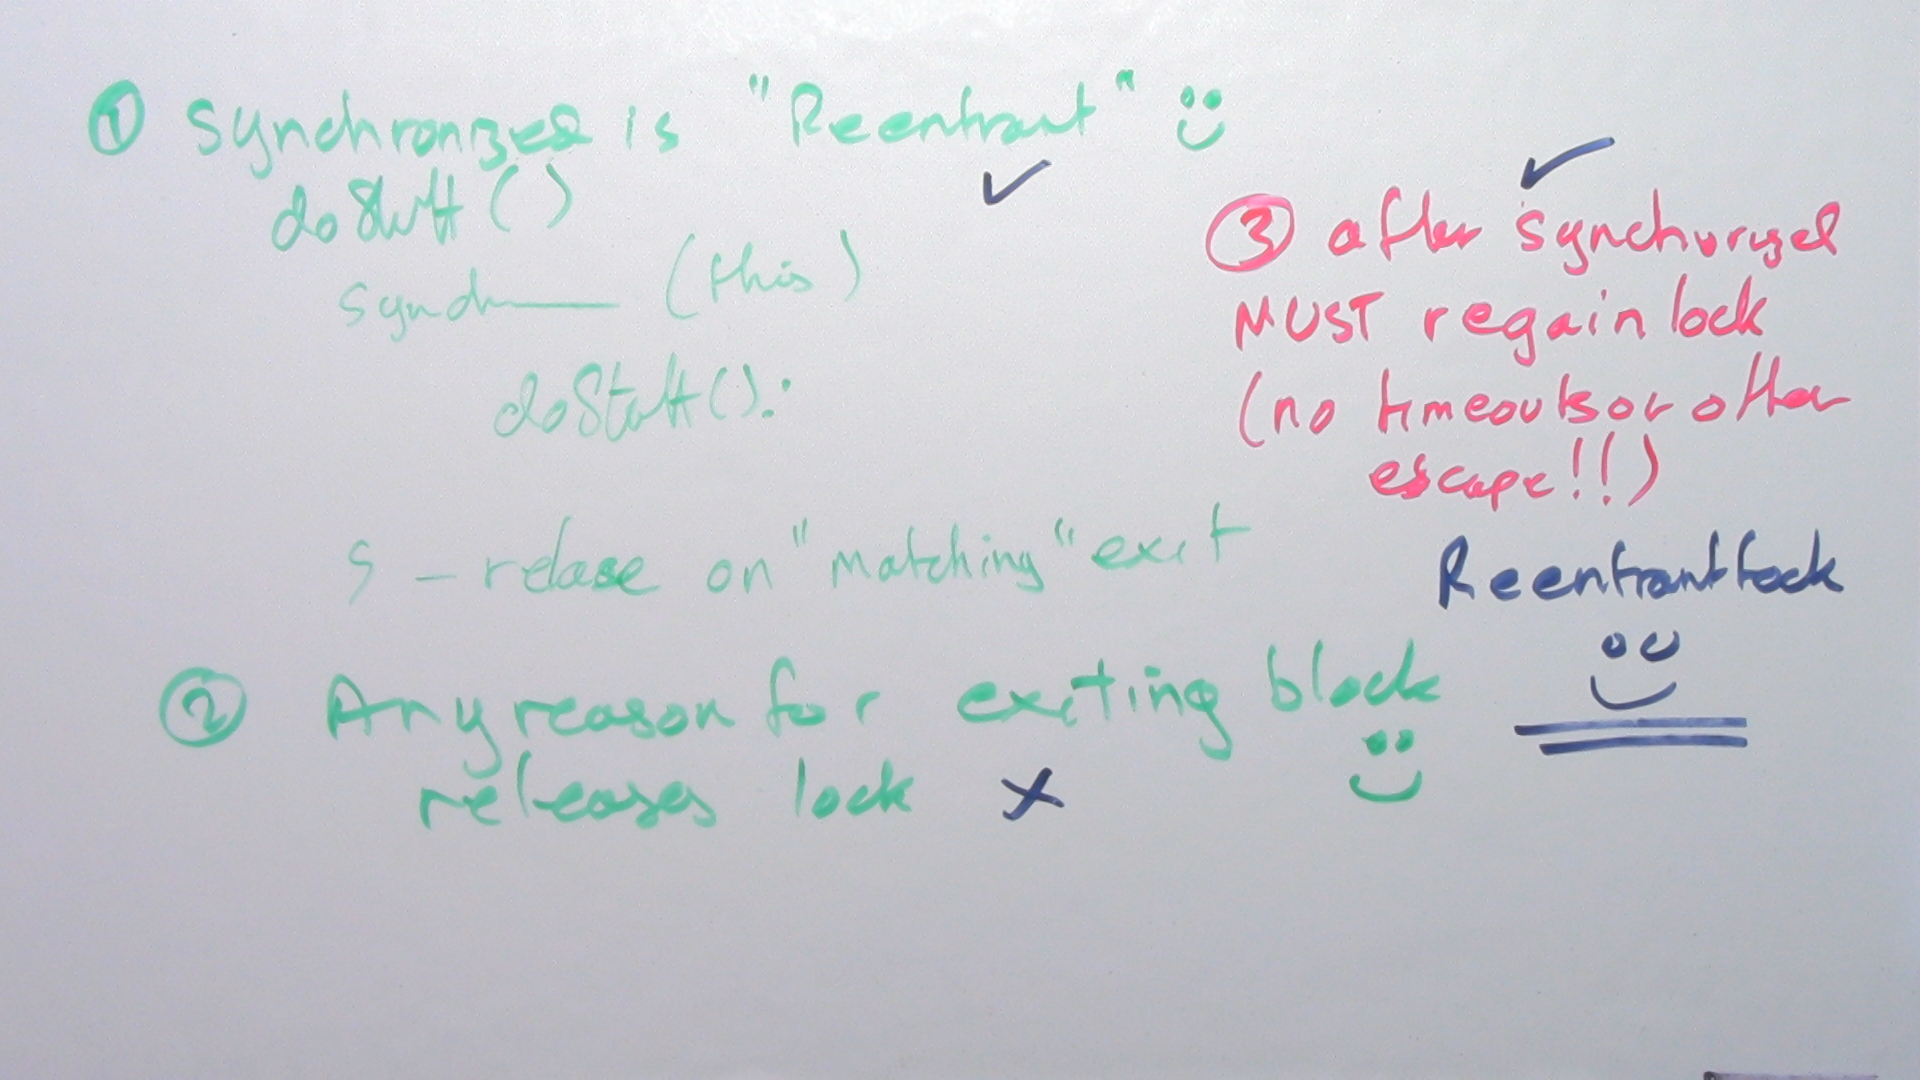 ① synchronized is "Reentrant"
doStuff()
synch (this)
doStuff();
} - release on "matching" exit
② Any reason for exiting block
releases lock x
③ after synchronized
MUST regain lock
(no timeouts or other
escape!!)
ReentrantLock